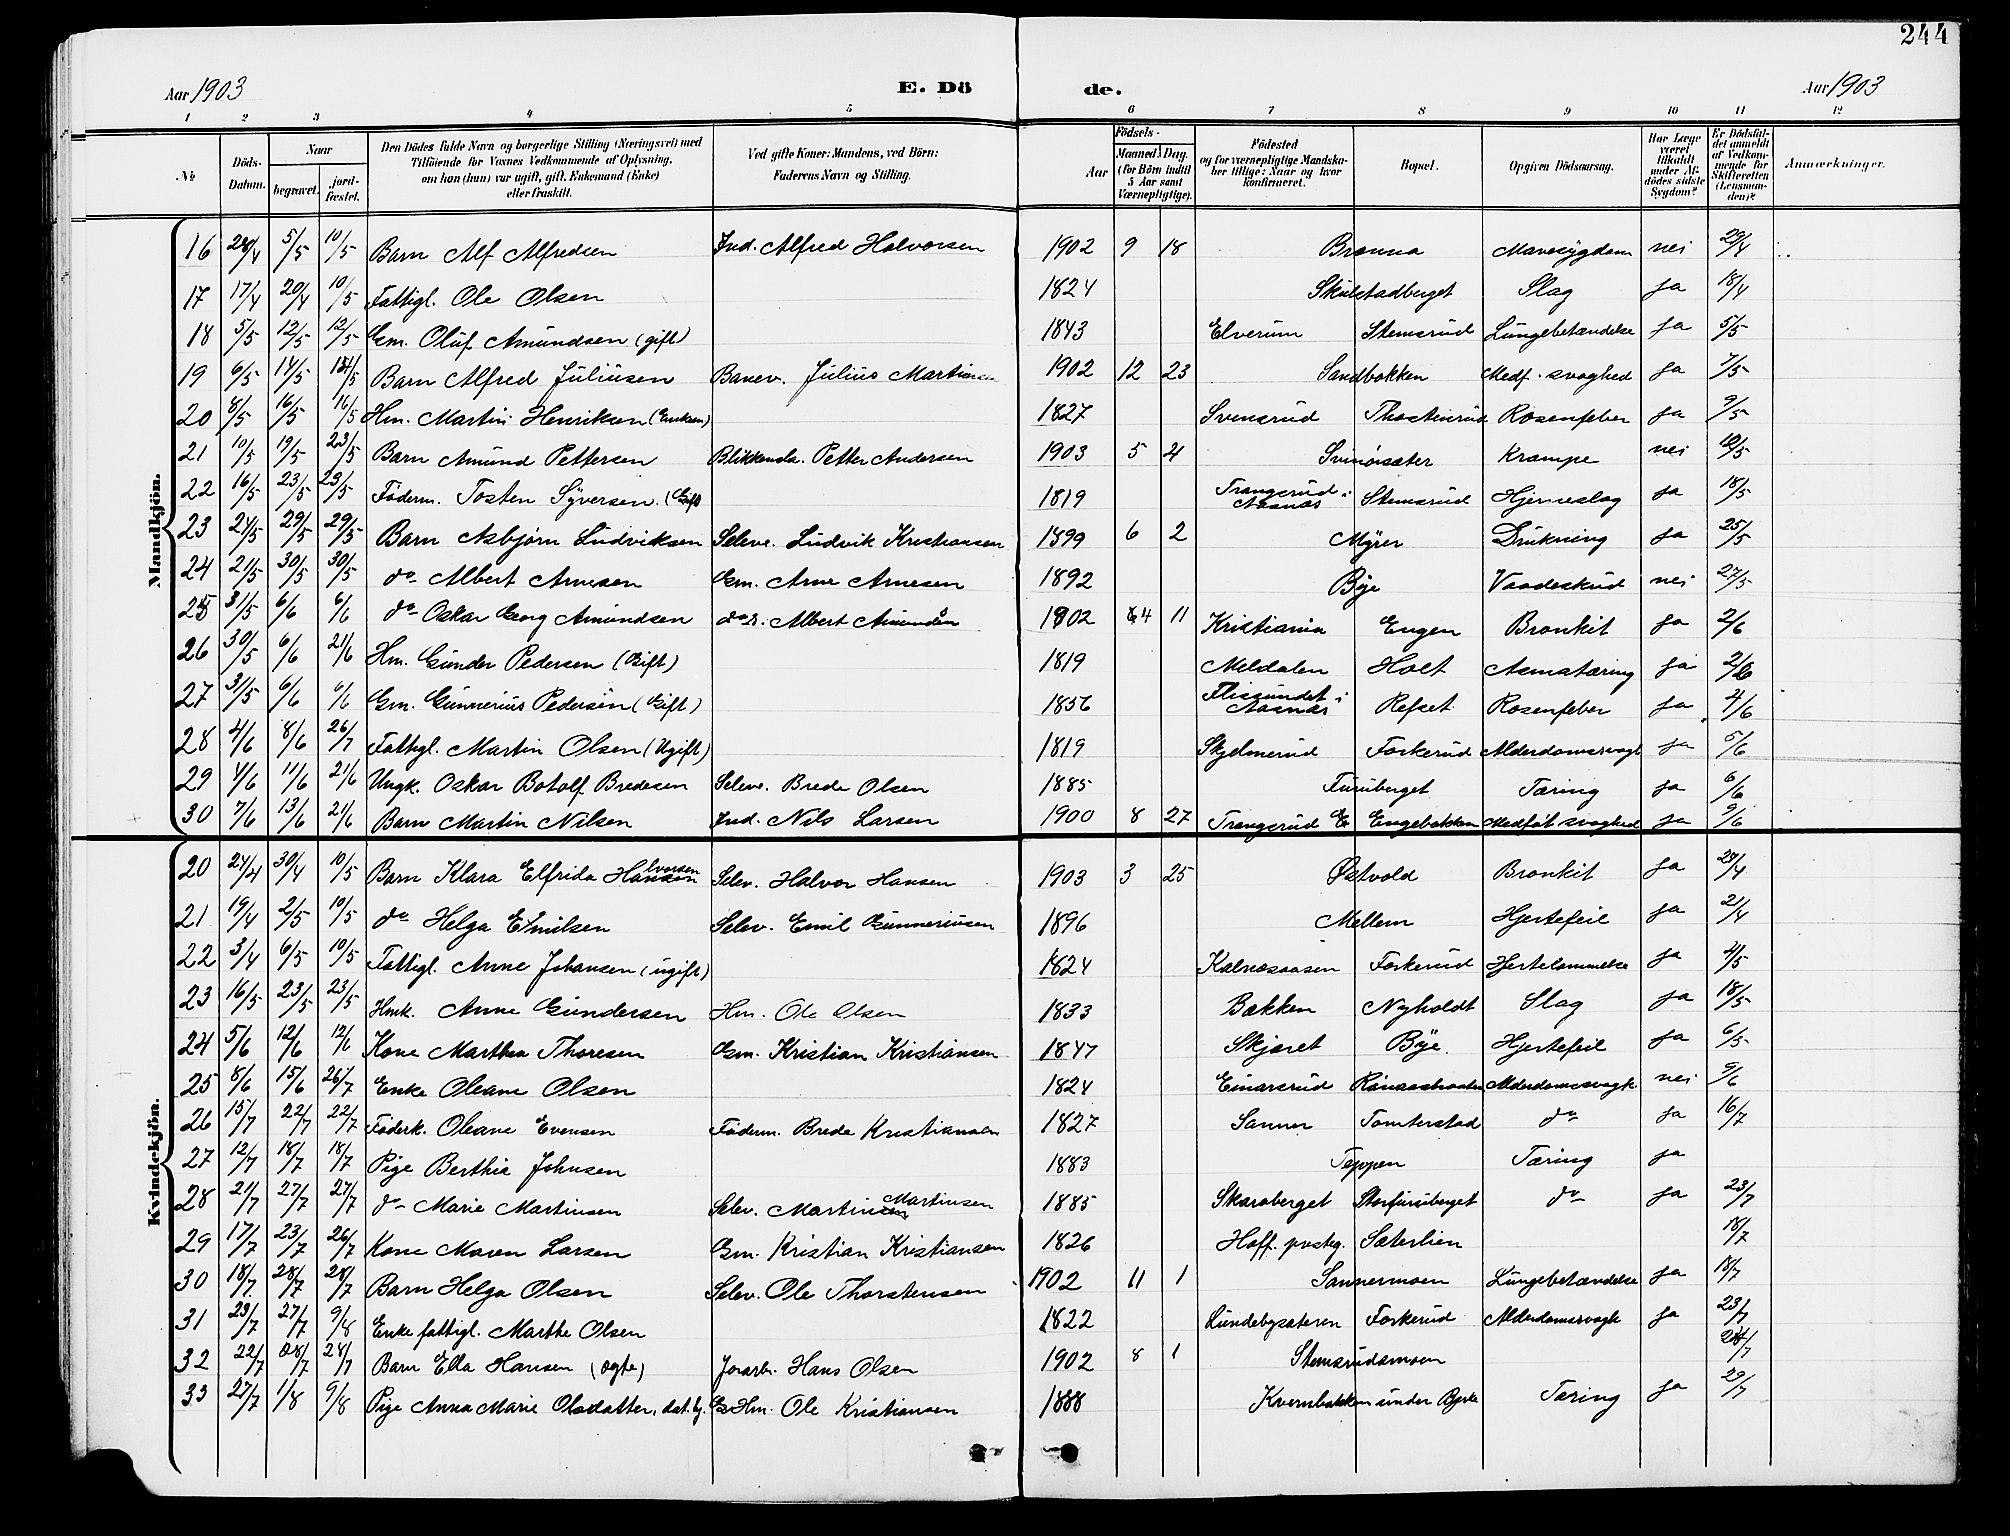 244
Aar 1903 E. Dö de. Aar 1903
1 2 3 4 5 6 7 8 9 10 11 12
№ Döds-Datum. Naar begravet. jord-fæstet. Den Dödes fulde Navn og borgerlige Stilling (Næringsvei) med Tilföiende for Voxnes Vedkommende af Oplysning, om han (hun) var ugift, gift, Enkemand (Enke) eller fraskilt. Ved gifte Koner: Mandens, ved Börn: Faderens Navn og Stilling. Födsels- Aar Maaned. Dag. (for Börn indtil 5 Aar samt Værnepligtige). Födested og for værnepligtige Mandskaber tillige: Naar og hvor konfirmeret. Bopæl. Opgiven Dödsaarsag. Har Læge været tilkaldt under Afdödes sidste Sygdom? Er Dödsfaldet anmeldt af Vedkommende for Skifteretten (Lensmanden)? Anmærkninger.
Mandkjön.
16 28/4 5/5 10/5 Barn Alf Alfredsen Ind. Alfred Halvorsen 1902 9 18 Brænna Mavesygdom nei 29/4
17 17/4 20/4 10/5 Fattigl. Ole Olsen 1824 Skulstadberget Slag ja 18/4
18 5/5 12/5 12/5 Gm. Oluf Amundsen (gift) 1843 Elverum Stemsrud Lungebetændelse ja 5/5
19 6/5 14/5 14/5 Barn Alfred Juliusen Banev. Julius Martinsen 1902 12 23 Sandbakken Medf. svaghed ja 7/5
20 8/5 16/5 16/5 Hm. Martin Henriksen (Enkem) 1827 Svensrud Thostenrud Rosenfeber ja 9/5
21 10/5 19/5 23/5 Barn Amund Pettersen Blikkensl. Petter Andersen 1903 5 4 Svinöisæter Krampe nei 12/5
22 16/5 23/5 23/5 Föderm. Tosten Syversen. (Gift) 1819 Trangsrud i Aasnæs Stemsrud Hjerneslag ja 18/5
23 24/5 29/5 29/5 Barn Asbjørn Ludviksen Seleve. Ludvik Kristiansen 1899 6 2 Myrer Drukning ja 25/5
24 21/5 30/5 30/5 do Albert Arnesen Gm. Arne Arnesen 1892 Bye Vaadeskud nei 27/5
25 31/5 6/6 6/6 do Oskar Georg Amundsen Albert Amundsen 1902 4 11 Kristiania Engen Bronkit ja 2/6
26 30/5 6/6 21/6 Hm. Gunder Pedersen (Gift) 1819 Meldalen Holt Asmatæring ja 2/6
27 31/5 6/6 6/6 Gm. Gunnerius Pedersen (Gift) 1856 Flissundet i Aasnæs Refset Rosenfeber ja 4/6
28 4/6 8/6 26/7 Fattigl. Martin Olsen (Ugift) 1819 Skjelmerud Forkerud Alderdomssvagh ja 5/6
29 4/6 11/6 21/6 Ungk. Oskar Botolf Bredesen Seleve. Brede Olsen 1885 Furuberget Tæring ja 6/6
30 7/6 13/6 21/6 Barn Martin Nilsen Ind. Nils Larsen 1900 8 27 Trangsrud Engebakken Medföt svaghed ja 9/6
Kvindekjön.
20 24/4 30/4 10/5 Barn Klara Elfrida Halvorsen Selev. Halvor Hansen 1903 3 25 Østvold Bronkit ja 28/4
21 19/4 2/5 10/5 do Helga Emilsen Selev. Emil Gunneriusen 1896 Mellem Hjertefeil ja 21/4
22 3/4 6/5 10/5 Fattigl. Anne Johansen (ugift) 1824 Kalnæsaasen Forkerud Hjertelammelse ja 4/5
23 16/5 23/5 23/5 Hmk. Anne Gundersen Hm. Ole Olsen 1833 Bakken Nyholdt Slag ja 18/5
24 5/6 12/6 12/6 Kone Marthea Thoresen Gm. Kristian Kristiansen 1847 Skjæret Bye. Hjertefeil ja 6/5
25 8/6 15/6 26/7 Enke Oleane Olsen 1824 Einarsrud Alderdomssvagh nei 9/6
26 15/7 22/7 22/7 Föderk. Oleane Evensen Föderm. Brede Kristiansen 1827 Sanner Tomterstad do ja 16/7
27 12/7 18/7 18/7 Pige Berthia Johnsen 1883 Teppen Tæring ja
28 21/7 27/7 27/7 do Marie Martinsen Selev. Martin Martinsen 1885 Skaraberget Storfuruberget do ja 23/7
29 17/7 23/7 26/7 Kone Maren Larsen Gm. Kristian Kristiansen 1826 Hoff. prstg. Sæterlien 18/7
30 18/7 28/7 28/7 Barn Helga Olsen Selev. Ole Thorstensen 1902 11 1 Sannermoen Lungebetændelse ja 18/7
31 23/7 27/7 9/8 Enke fattigl. Marthe Olsen 1822 Lundebysæteren Forkerud Alderdomssvagh ja 23/7
32 22/7 28/7 28/7 Barn Ella Hansen (ægte) Jorarb. Hans Olsen 1902 8 1 Stemsrudsmoen 24/7
33 27/7 1/8 9/8 Pige Anna Marie Olsdatter, Hm. Ole Kristiansen 1888 Kvernbakken under Tæring ja 29/7